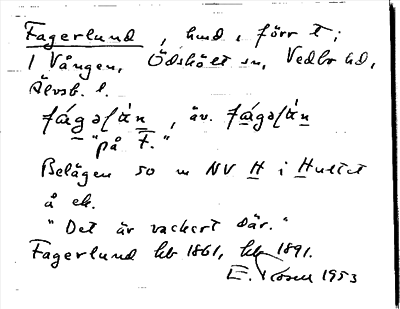 Fagerlund, hmd, förr t;
1 Vången, Ödskölt sn, Vedbo hd,
Älvsb. l.
fágəlàn, äv. fágəlàn
"på F."
Belägen 50 m NV H i Hultet
å ek.
"Det är vackert där."
Fagerlund hb 1861, hb 1891.
E. Rosell 1953